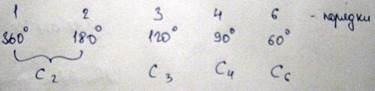 1 2 3 4 6 - порядки
360° 180° 120° 90° 60°
C₂ C₃ C₄ C₆